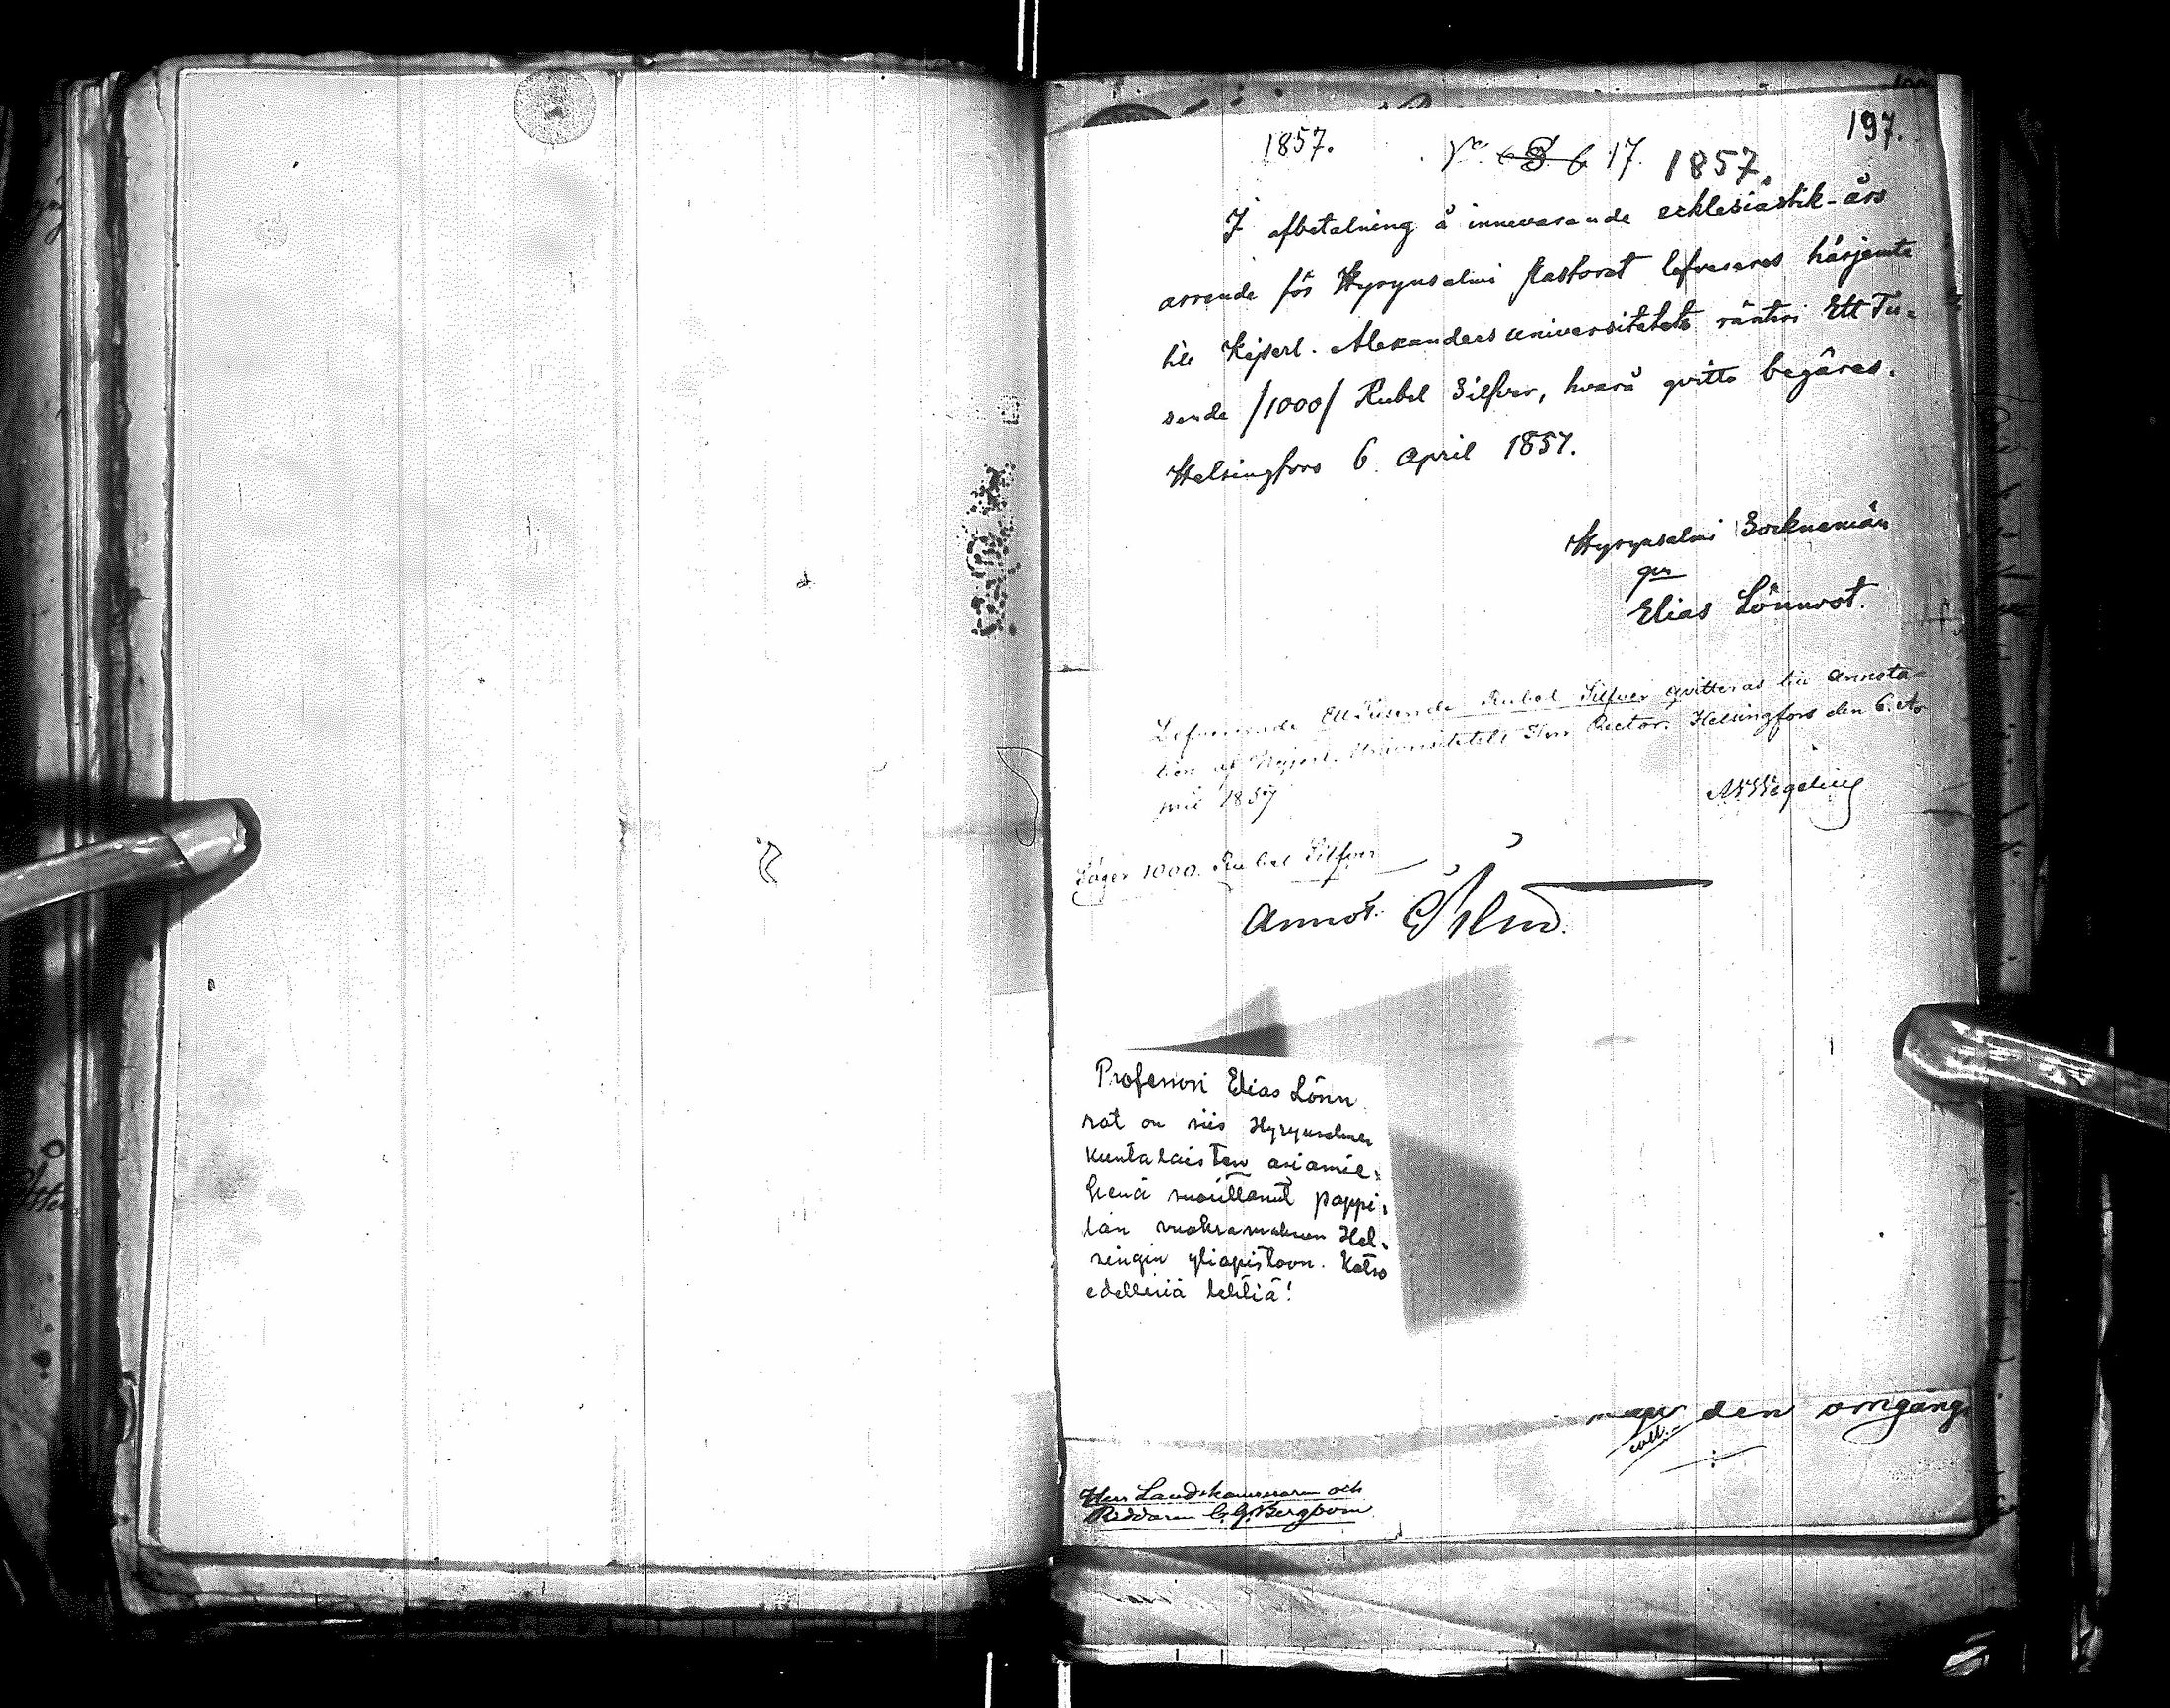 197.
1857. 6 17. 1857.
I afbetalning å innevarande ecklesiastik-års
arrende för Hyrynsalmi Pastorat lefvereras härjemte
till Kejserl. Alexanders universitetets ränteri Ett Tu-
sende /1000/ Rubel Silfver, hvarå qvitto begäres.
Helsingfors 6. April 1857.
Hyrynsalmi Socknemän
gm
Elias Lönnrot.
Lefvererade Ett Tusende Rubel Silfver qvitteras till annota-
tion af Kejserl. Universitetets Herr Rector. Helsingfors den 6. Ap
ril 1857
Säger 1000. Rubel Silfver
Annot.
Professori Elias Lönn
rot on siis Hyrynsalmen
kuntalaisten asiamie-
henä suorittanut pappi-
lan vuokramaksun Hel-
singin yliopistoon. Katso
edellisiä lehtiä!
den omgång
coll.
Herr Landskamreraren och
Riddaren C. G. Bergbom